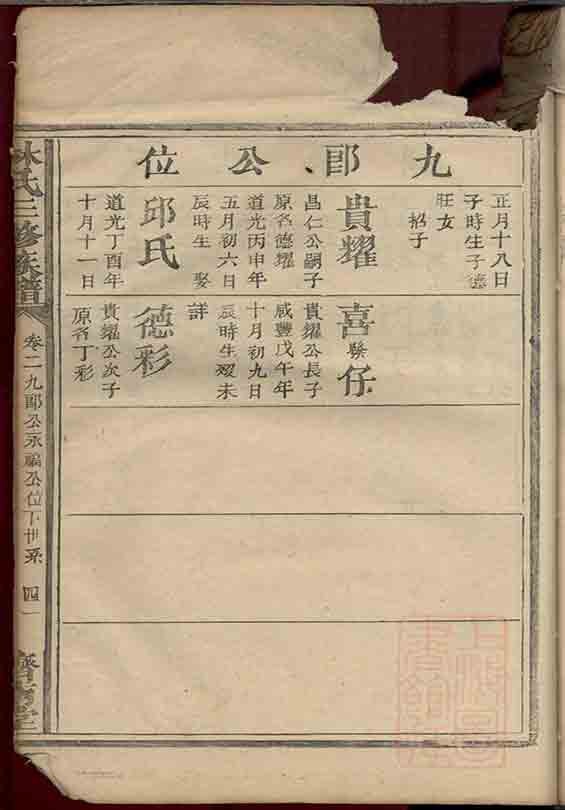 九郎公位
正月十八日
子時生子德
旺女
招子
貴耀
昌仁公嗣子
原名德耀
道光丙申年
五月初六日
辰時生 娶
邱氏
道光丁酉年
十月十一日
喜癸仔
貴耀公長子
咸豐戊午年
十月初九日
辰時生歿未
詳
德彩
貴耀公次子
原名丁彩
林氏三修族譜
卷二九郎公永福公位下世系
四一